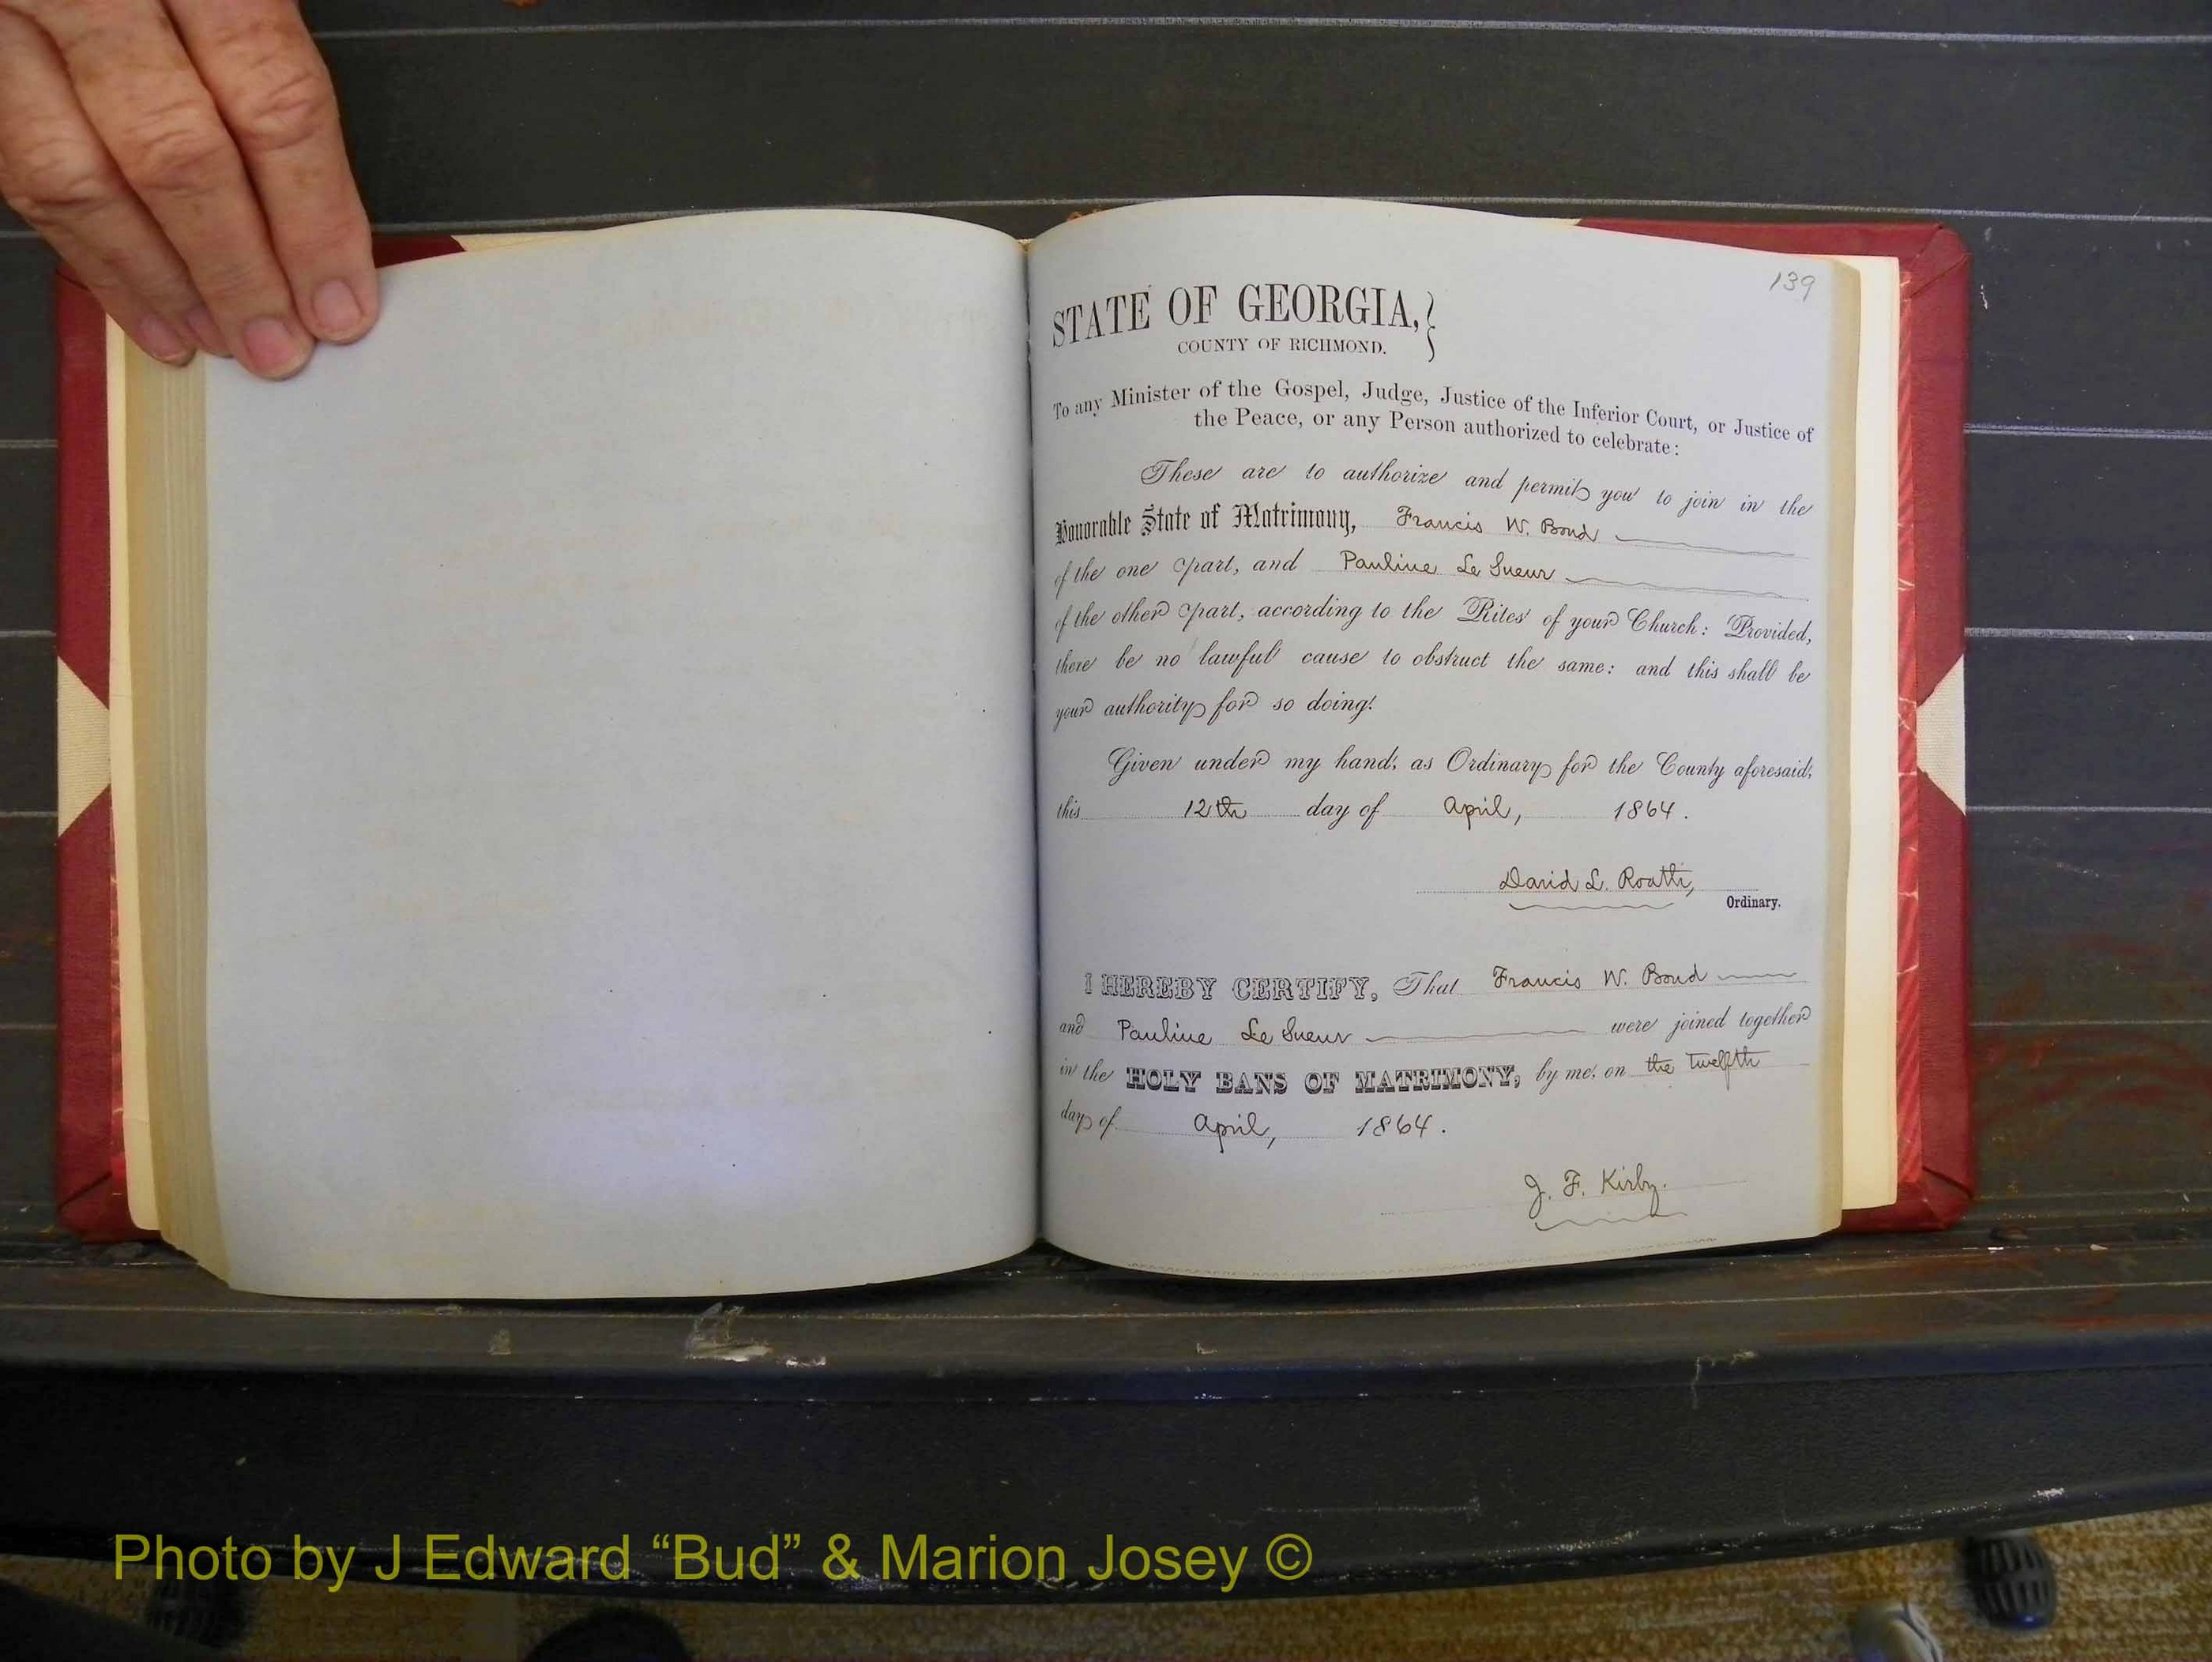 139
STATE OF GEORGIA,
COUNTY OF RICHMOND.
To any Minister of the Gospel, Judge, Justice of the Inferior Court, or Justice of
the Peace, or any Person authorized to celebrate:
These are to authorize and permit you to join in the
Honorable State of Matrimony, Francis W. Bond
of the one part, and Pauline Le Sueur
of the other part, according to the Rites of your Church: Provided,
there be no lawful cause to obstruct the same: and this shall be
your authority for so doing.
Given under my hand, as Ordinary for the County aforesaid,
this 12th day of April, 1864.
David L. Roath,
Ordinary.
I HEREBY CERTIFY, That Francis W. Bond
and Pauline Le Sueur were joined together
in the HOLY BANS OF MATRIMONY, by me, on the twelfth
day of April, 1864.
J. F. Kirby.
Photo by J Edward “Bud” & Marion Josey ©